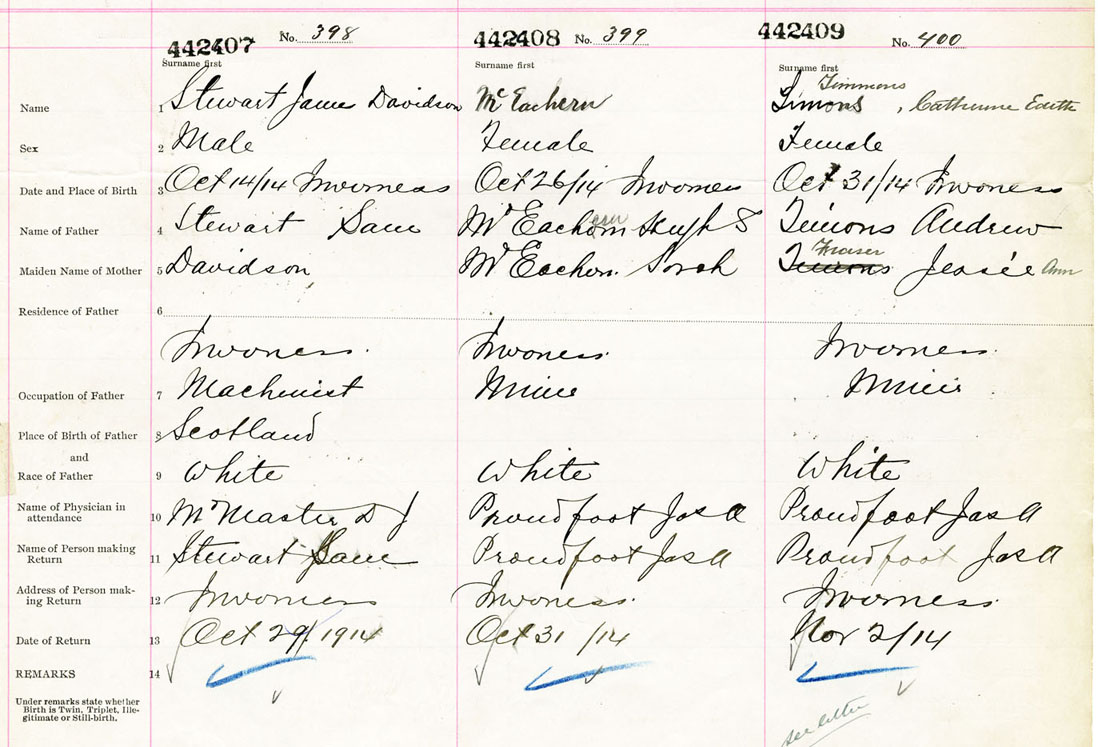 442407 No. 398 442408 No. 399 442409 No. 400
Surname first Surname first Surname first
Timmons
Name 1 Stewart James Davidson McEachern Simons, Catherine Edith
Sex 2 Male Female Female
Date and Place of Birth 3 Oct 14/14 Inverness Oct 26/14 Inverness Oct 31/14 Inverness
Name of Father 4 Stewart McEachern Hugh S Timons Andrew
Fraser
Maiden Name of Mother 5 Davidson McEachern Sarah Timons Jessie Ann
Residence of Father 6
Inverness. Inverness. Inverness.
Occupation of Father 7 Machinist Miner Miner
Place of Birth of Father 8 Scotland
and
Race of Father 9 White White White
Name of Physician in
attendance 10 McMaster D J Proudfoot Jas A Proudfoot Jas A
Name of Person making
Return 11 Stewart Proudfoot Jas A Proudfoot Jas A
Address of Person mak-
ing Return 12 Inverness Inverness. Inverness.
Date of Return 13 Oct 29/1914 Oct 31/14 Nov 2/14
REMARKS 14
Under remarks state whether
Birth is Twin, Triplet, Ille-
gitimate or Still-birth.
see letter